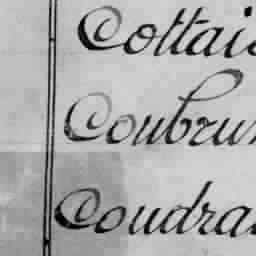 Cottais
Coubrun
Coudra